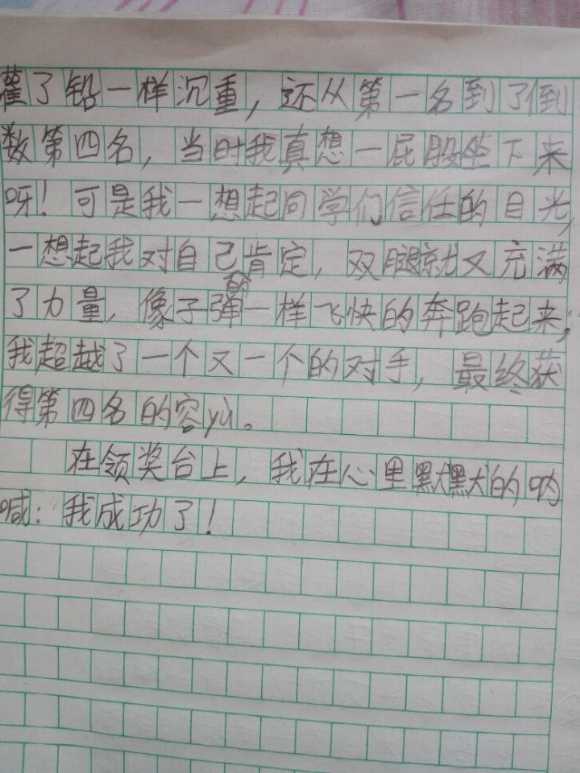 灌了铅一样沉重，还从第一名到了倒
数第四名，当时我真想一屁股坐下来
呀！可是我一想起同学们信任的目光，
一想起我对自己的肯定，双腿就又充满
了力量，像子弹一样飞快的奔跑起来；
我超越了一个又一个的对手，最终获
得第四名的容yù。
在领奖台上，我在心里默默的呐
喊：我成功了！